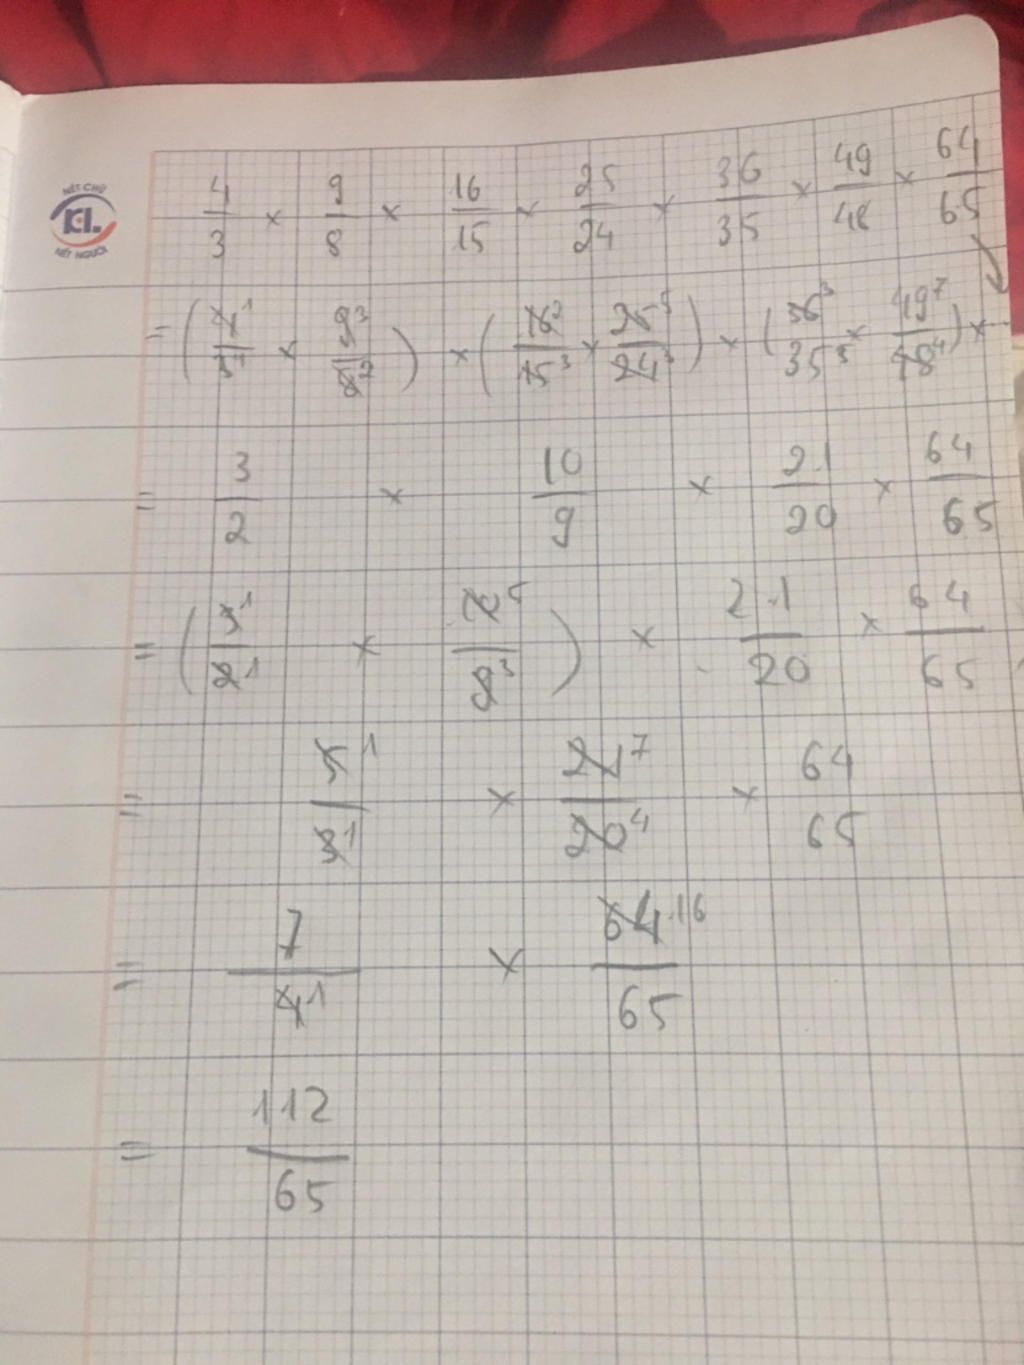 NÉT CHỮ
KL.
NẾT NGƯỜI
4/3 × 9/8 × 16/15 × 25/24 × 36/35 × 49/48 × 64/65
= (4¹/3¹ × 9³/8²) × (16²/15³ × 25⁵/24³) × (36³/35⁵ × 49⁷/48⁴) ×
= 3/2 × 10/9 × 21/20 × 64/65
= (3¹/2¹ × 10⁵/9³) × 21/20 × 64/65
= 5¹/3¹ × 21⁷/20⁴ × 64/65
= 7/4¹ × 64¹⁶/65
= 112/65